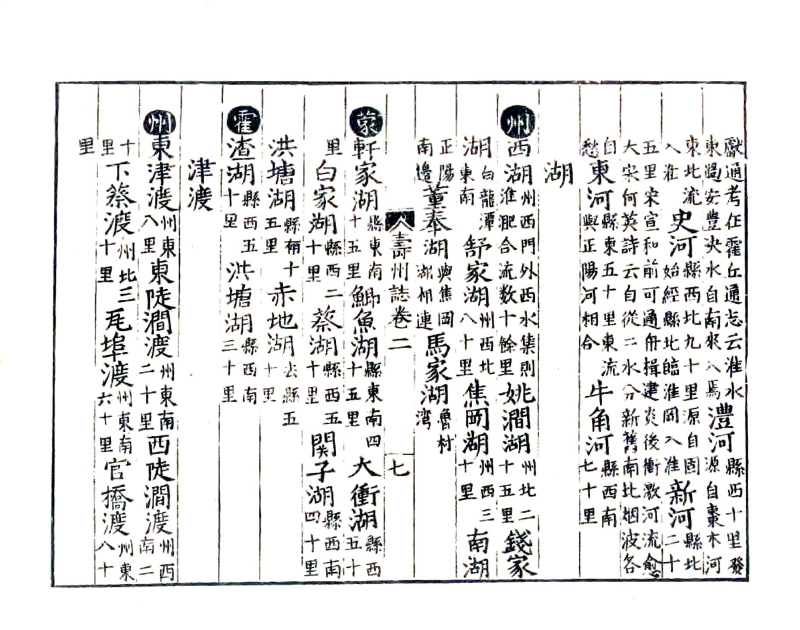 獻通考在霍丘通志云淮水東隅安豊決水自南來入焉灃河縣西十里發源自棗木河
東北流入淮史河縣西北九十里源自固始經縣北臨淮岡入淮新河縣北二十
五里宋宣和前可通舟楫建炎後衝激河流愈大宋何英詩云自從二水分新舊南北烟波各
自愁東河縣東五十里東流與正陽河相合牛角河縣西南七十里
湖
州西湖州西門外西水集則淮肥合流数十餘里姚澗湖州北二十五里錢家
湖白龍潭東南舒家湖州西北八十里焦岡湖州西三十里南湖
正陽南邊董奉湖與焦岡湖相連馬家湖魯村灣
壽州誌卷二 七
蒙軒家湖縣東南十五里鯽魚湖縣東南四十五里大衝湖縣西五十
里白家湖縣西二十里蔡湖縣西五十里関子湖縣西南四十里
洪塘湖縣南十五里赤地湖去縣五十里
霍渣湖縣西五十里洪塘湖縣西南三十里
津渡
州東津渡州東八里東陡澗渡州東南二十里西陡澗渡州西南二
十里下蔡渡州北三十里瓦埠渡州東南六十里官橋渡州東八十
里